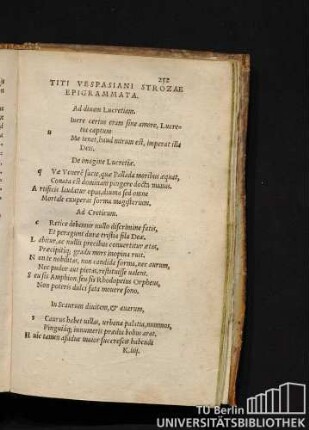 252
TITI VESPASIANI STROZAE
EPIGRAMMATA.
Ad diuam Lucretiam.
ere certus eram sine amore, Lucre-
captum
Me tenet, haud mirum est, imperat illa
Deis.
De imagine Lucretiæ.
Q Væ Venerē facie, quæ Pallada moribus æquat,
Conata est dominam pingere docta manus.
A rtificis laudatur opus, diuina sed omne
Mortale exuperat forma magisterium.
Ad Creticum.
C Retice debemur nullo discrimine fatis,
Et peragunt duræ tristia fila Deæ.
L abitur, ac nullis precibus conuertitur ætas,
Præcipitiq́; gradu mors inopina ruit.
N on te nobilitas, non candida forma, nec aurum,
Nec pudor aut pietas, restituisse ualent.
S eu sis Amphion, seu sis Rhodopeius Orpheus,
Non poteris dulci fata mouere sono.
In Scaurum diuitem, & auarum,
S Caurus habet uillas, urbana palatia, nummos,
Pinguiaq́; innumeris prædia bobus arat.
H uic tamen assidue maior succrescit habendi
K iiij
TU Berlin
UNIVERSITÄTSBIBLIOTHEK